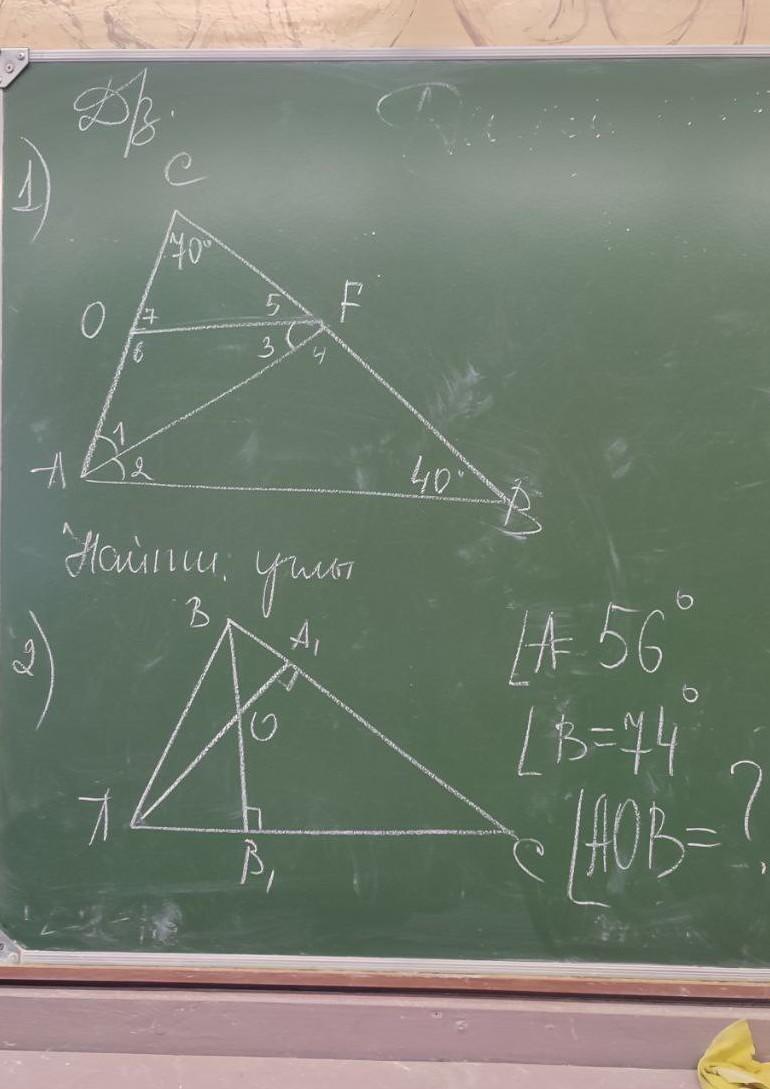 Дз.
1)
C
70°
O 7 5 F
6 3 4
1
A 2 40° B
Найти углы
2)
B A₁
O
A B₁ C
∠A = 56°
∠B = 74°
∠AOB = ?